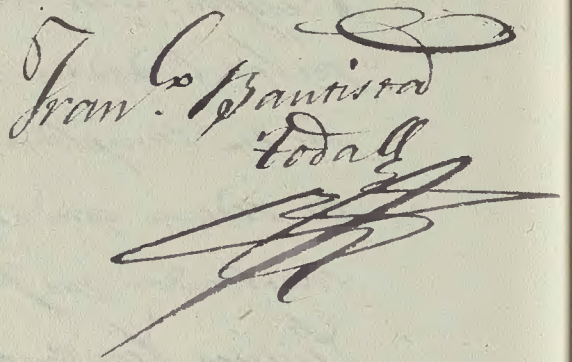 Fran.co Bautista
Todall